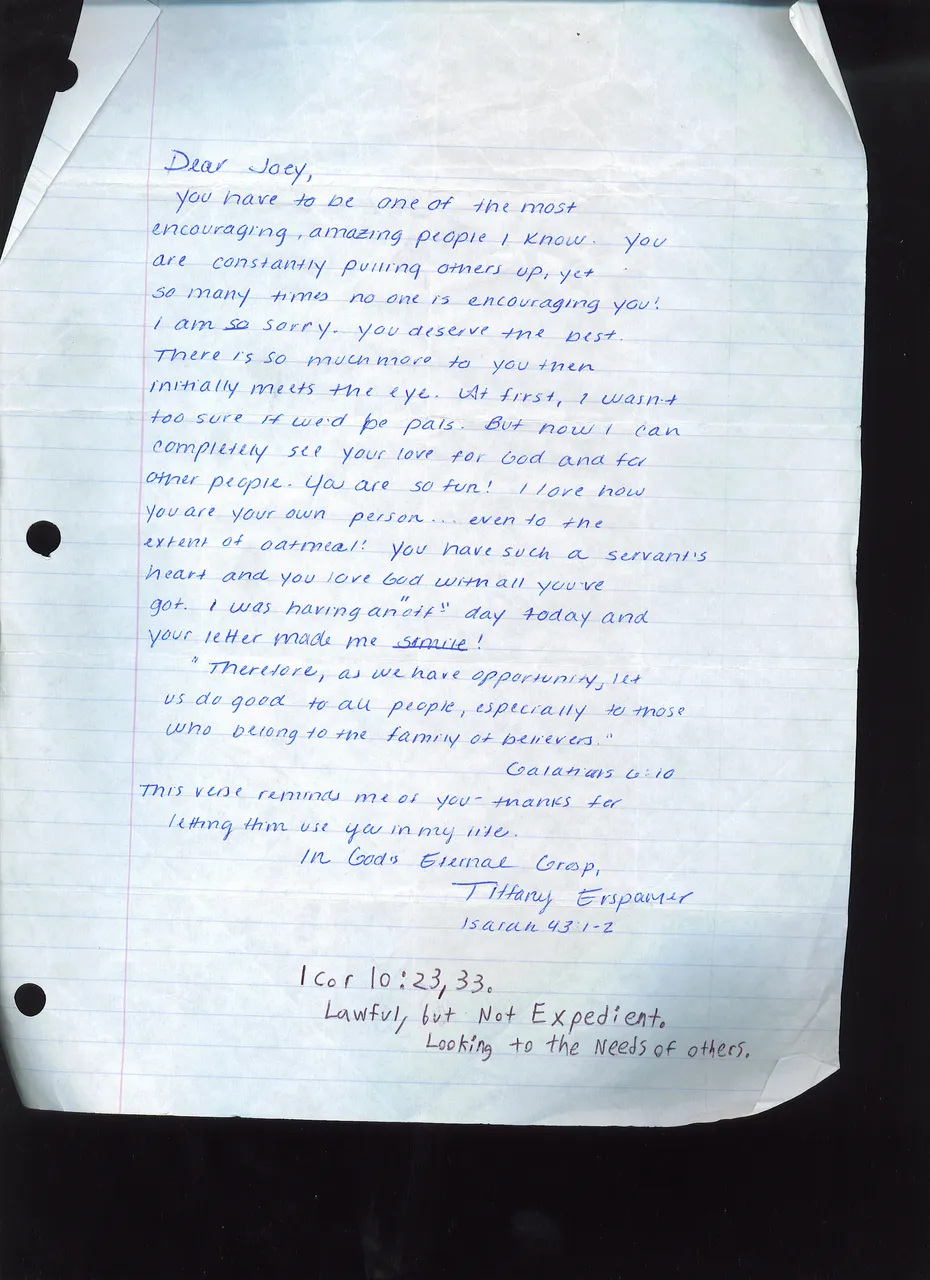 Dear Joey,
you have to be one of the most
encouraging, amazing people I know. you
are constantly pulling others up, yet
so many times no one is encouraging you!
I am so sorry. you deserve the best.
There is so much more to you then
initially meets the eye. At first, I wasn't
too sure if we'd be pals. But now I can
completely see your love for God and for
other people. You are so fun! I love how
you are your own person... even to the
extent of oatmeal! you have such a servant's
heart and you love God with all you've
got. I was having an "off" day today and
your letter made me smile!
"Therefore, as we have opportunity, let
us do good to all people, especially to those
who belong to the family of believers."
Galatians 6:10
This verse reminds me of you- thanks for
letting Him use you in my life.
In God's Eternal Grasp,
Tiffany Erspamer
Isaiah 43:1-2
1 Cor 10:23,33.
Lawful, but Not Expedient.
Looking to the Needs of others.